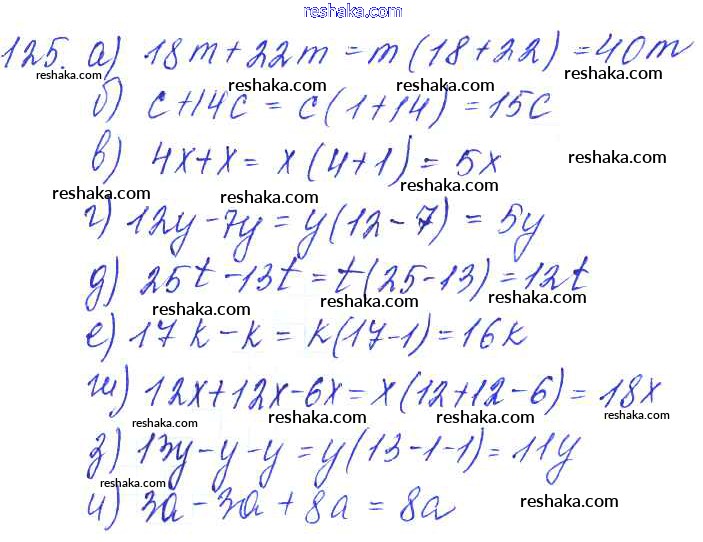 reshaka.com
125. а) 18m + 22m = m (18 + 22) = 40m
reshaka.com reshaka.com reshaka.com reshaka.com
б) c + 14c = c (1 + 14) = 15c
в) 4x + x = x (4 + 1) = 5x
reshaka.com
reshaka.com reshaka.com reshaka.com
г) 12y - 7y = y (12 - 7) = 5y
reshaka.com reshaka.com
д) 25t - 13t = t (25 - 13) = 12t
reshaka.com reshaka.com reshaka.com
е) 17k - k = k (17 - 1) = 16k
reshaka.com reshaka.com
ж) 12x + 12x - 6x = x (12 + 12 - 6) = 18x
reshaka.com reshaka.com reshaka.com reshaka.com
з) 13y - y - y = y (13 - 1 - 1) = 11y
reshaka.com reshaka.com reshaka.com
и) 3a - 3a + 8a = 8a
reshaka.com